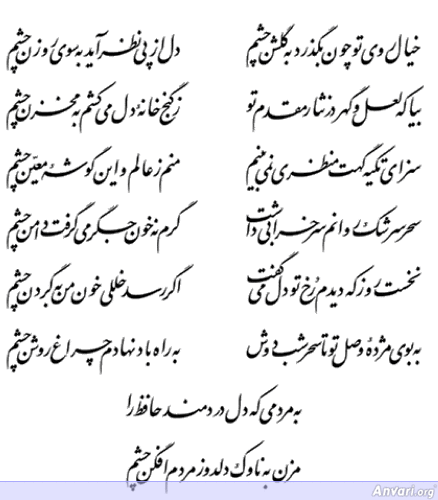 خیال روی تو چون بگذرد به گلشن چشم
دل از پی نظر آید به سوی روزن چشم
بیا که لعل و گهر در نثار مقدم تو
ز گنج خانهٔ دل می کشم به مخزن چشم
سزای تکیه گهت منظری نمی بینم
منم ز عالم و این گوشهٔ معیّن چشم
سحر سرشک روانم سر خرابی داشت
گرم نه خون جگر می گرفت دامن چشم
نخست روز که دیدم رُخ تو دل می گفت
اگر رسد خللی خون من به گردن چشم
به بوی مژدهٔ وصل تو تا سحر شب دوش
به راه باد نهادم چراغ روشن چشم
به مردمی که دل دردمند حافظ را
مزن به ناوک دلدوز مردم افکن چشم
Anvari.org